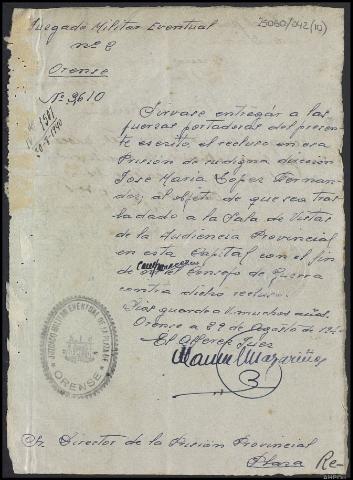 Juzgado Militar Eventual
nº 2
Orense
Nº 3610
15060/042(10)
Sirvase entregár a las
fuerzas portadoras del presen-
te escrito, el recluso en esa
Prisión de su digna dirección
Jose Maria Lopez Fernan-
dez; al objeto de que sea tras-
ladado a la Sala de Vistas
de la Audiencia Provincial
en esta Capital con el fin
de el Consejo de Guerra
contra dicho recluso.
Dios guarde a V. muchos años.
Orense a 29 de Agosto de
El Alferez Juez
JUZGADO MILITAR EVENTUAL DE LA PLAZA DE
ORENSE
Sr. Director de la Prisión Provincial
Plaza
Re-